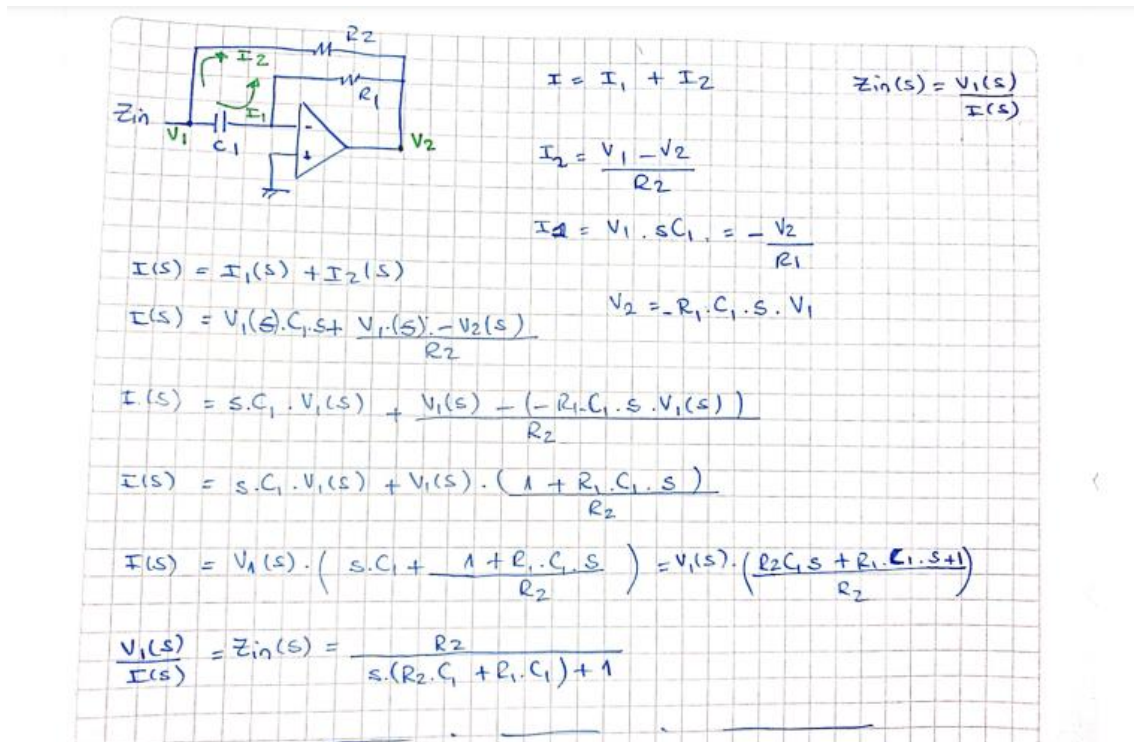 R2
I2
R1
I1
Zin
V1
C1
-
+
V2
I = I1 + I2
Zin(s) = V1(s) / I(s)
I2 = V1 - V2 / R2
I1 = V1 . sC1 . = - V2 / R1
V2 = - R1 . C1 . s . V1
I(s) = I1(s) + I2(s)
I(s) = V1(s) . C1 . s + V1.(s) . - V2(s) / R2
I.(s) = s.C1 . V1(s) + V1(s) - (- R1.C1 . s . V1(s)) / R2
I(s) = s.C1 . V1(s) + V1(s) . (1 + R1.C1 . s) / R2
I(s) = V1(s) . ( s.C1 + 1 + R1.C1.s / R2 ) = V1(s) . ( R2C1s + R1.C1.s+1 / R2 )
V1(s) / I(s) = Zin(s) = R2 / s.(R2.C1 + R1.C1) + 1